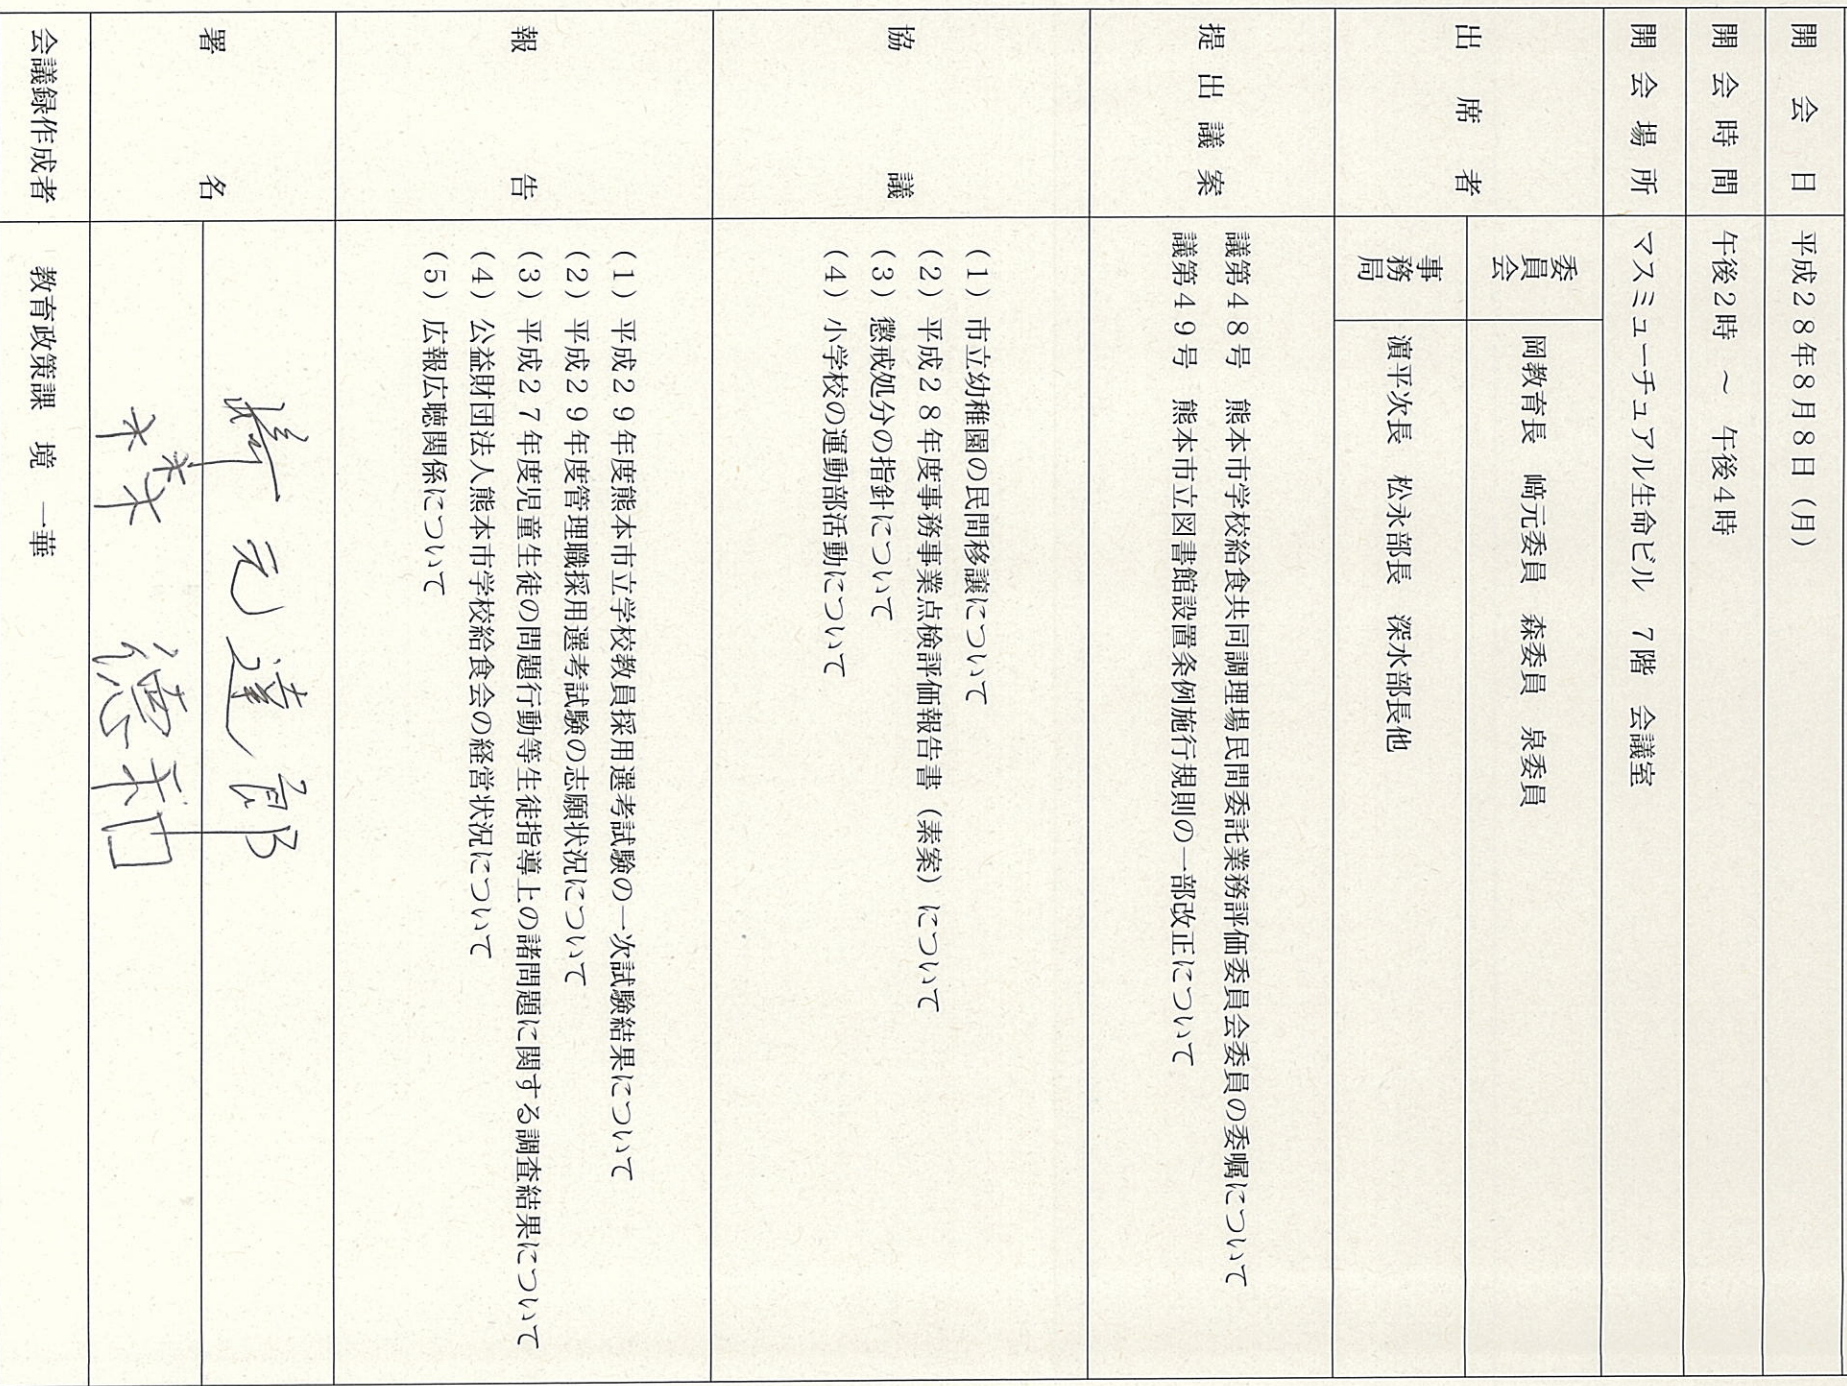 開会日 平成28年8月8日（月）
開会時間 午後2時 ～ 午後4時
開会場所 マスミューチュアル生命ビル 7階 会議室
出席者
委員会 岡教育長 﨑元委員 森委員 泉委員
事務局 濵平次長 松永部長 深水部長他
提出議案
議第48号 熊本市学校給食共同調理場民間委託業務評価委員会委員の委嘱について
議第49号 熊本市立図書館設置条例施行規則の一部改正について
協議
（1）市立幼稚園の民間移譲について
（2）平成28年度事務事業点検評価報告書（素案）について
（3）懲戒処分の指針について
（4）小学校の運動部活動について
報告
（1）平成29年度熊本市立学校教員採用選考試験の一次試験結果について
（2）平成29年度管理職採用選考試験の志願状況について
（3）平成27年度児童生徒の問題行動等生徒指導上の諸問題に関する調査結果について
（4）公益財団法人熊本市学校給食会の経営状況について
（5）広報広聴関係について
署名
﨑元達郎
森 德和
会議録作成者 教育政策課 境 一華